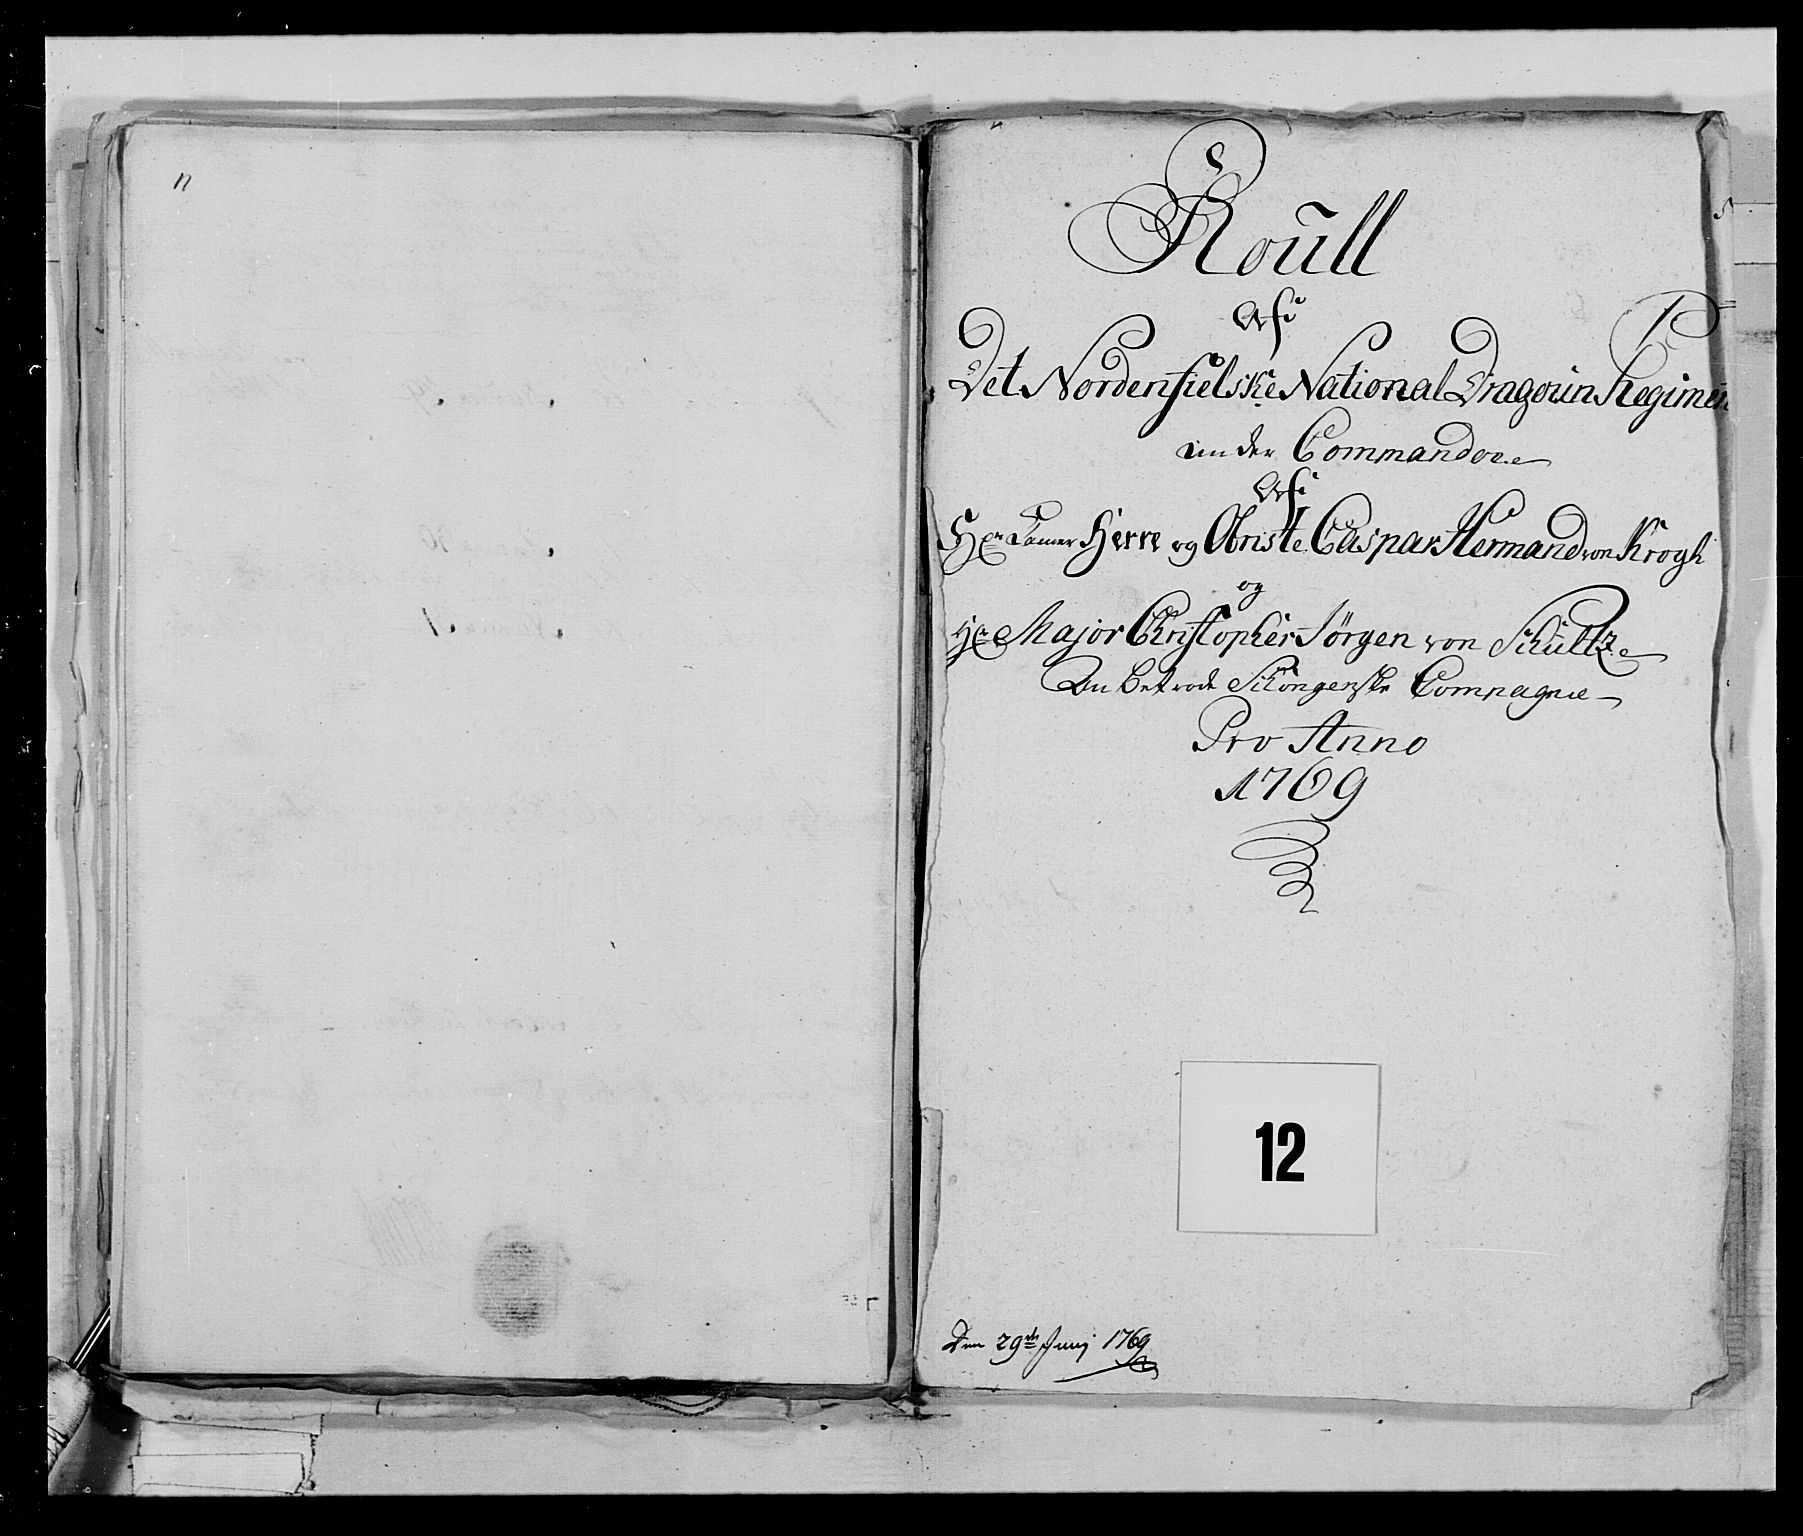 Roull
Af
Det Nordenfielske National Dragoun Regimen
under Commandoe
Af
Hr Kamer Herre og Obriste Caspar Hermand von Krogh
og
Hr Major Christopher Jørgen von Schultz
An betrode Schongenske Compagnie
Pro Anno
1769
12
Den 29de Junij 1769